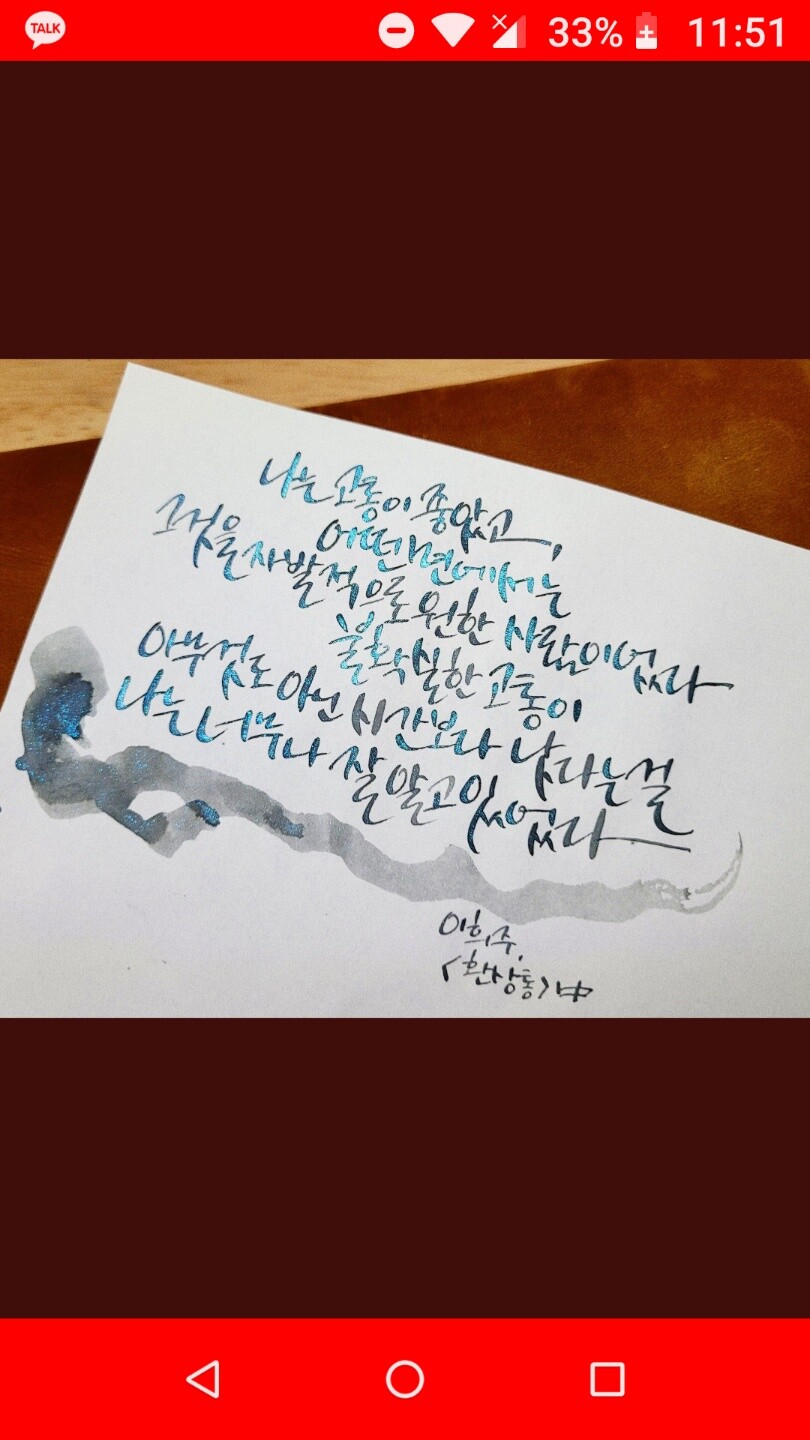 TALK
33%
11:51
나는 고통이 좋았고,
어떤 면에서는
그것을 자발적으로 원한 사람이었다
불확실한 고통이
아무것도 아닌 시간보다 낫다는 걸
나는 너무나 잘 알고 있었다
이희주,
<환상통> 中